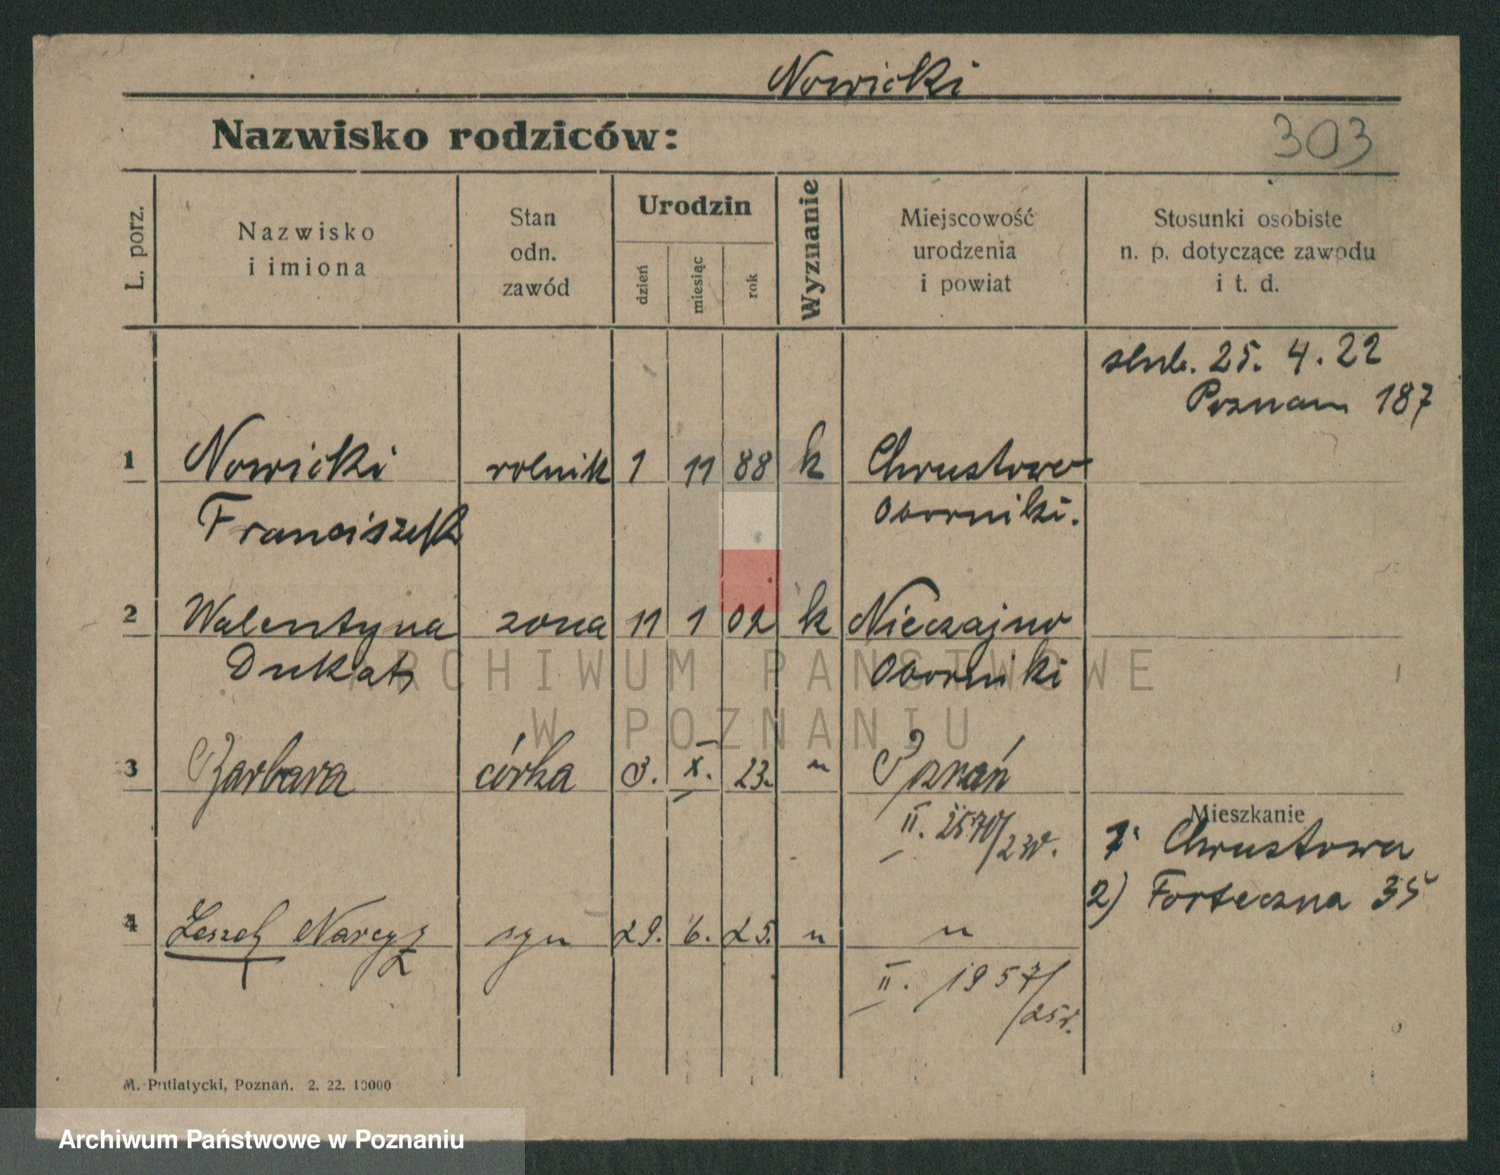 Nowicki
Nazwisko rodziców:
303
L. porz.
Nazwisko
i imiona
Stan
odn.
zawód
Urodzin
dzień
miesiąc
rok
Wyznanie
Miejscowość
urodzenia
i powiat
Stosunki osobiste
n. p. dotyczące zawodu
i t. d.
slub. 25. 4. 22
Poznam 187
1 Nowicki rolnik 1 11 88 k Chrustowo
Franciszek Oborniki.
2 Walentyna zona 11 1 02 k Nieczajno
Dukat Oborniki
ARCHIWUM PAŃSTWOWE
W POZNANIU
3 Barbara córka 3. X. 23. " Poznań
II. 2570/23r.
Mieszkanie
1. Chrustowa
2) Forteczna 35
4 Leszek Narcyz syn 29. 6. 25. " "
II. 1957/25r.
M. Putiatycki, Poznań. 2. 22. 10000
Archiwum Państwowe w Poznaniu